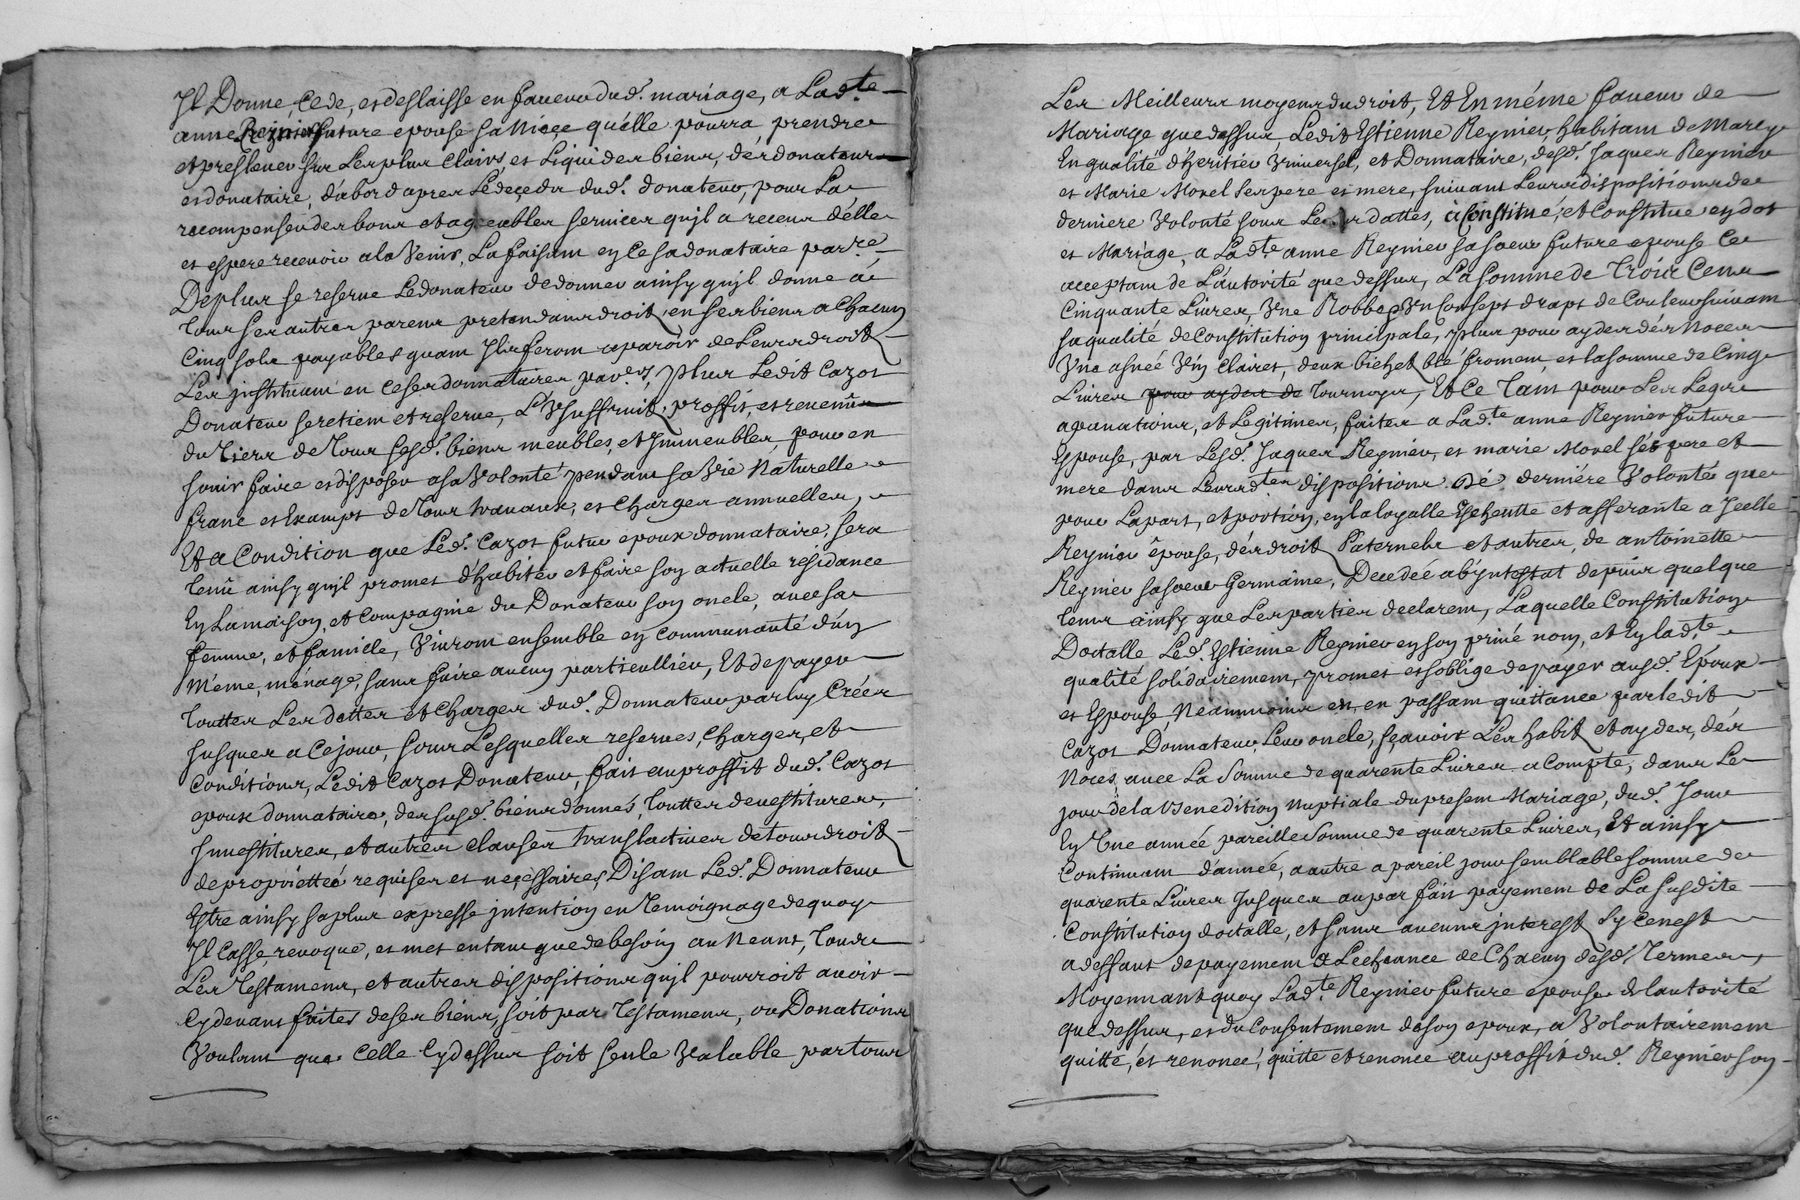 Il Donne, Cede, et deslaisse en faveur dud. mariage, a Lad.te
anne Reynier future epouse sa Niece qu'elle pourra, prendre
et preslever sur Les plus Clairs, et Liquides biens, des donateur
et donataire, d'abord apres Le deçedz dud. donateur, pour La
recompenser des bons et agreables services qu'il a receus d'elle
et espere recevoir a la Venir, La faisant en ce sa donataire par.re
De plus se reserve Le donateur de donner ainsy qu'il donne à
tous ses autres parens pretendans droit, en ses biens a Chacun
Cinq sols payables quant Ils feront aparoir de Leurs droit
Les jnstituant en ce ses donnataires par.ers, plus Ledit Cazot
Donateur se retient et reserve, L'Usuffruit, proffit, et revenûs
du Tiers de Tous sesd. biens meubles, et Immeubles pour en
jouir faire et disposer a sa Volonté pendant sa Vie Naturelle
franc et Exampt de Tous travaux, et Charges annuelles,
Et a Condition que Led. Cazot futur epoux donnataire, sera
tenû ainsy qu'il promet d'habiter et faire son actuelle residance
En La maison, et Compagnie du Donateur son oncle, avec sa
femme, et famille, Vivront ensemble en Communauté d'un
Même, menage, sans faire aucun particullier, Et de payer
toutes Les dettes et Charges dud. Donnateur par luy Créés
Jusques a Ce jour, sous Lesquelles reserves, Charges, et
Conditions, Ledit Cazot Donateur, fait au proffit dud. Cazot
epoux donnataire, des susd. biens donnés, touttes devestitures,
Jnvestitures, et autres clauses translactives de tous droit
de propriettés requises et neçessaires, Disant Led. Donnateur
Estre ainsy sa plus expresse jntention en temoignage de quoy
Il Casse, revoque, et met en tant que de besoin au Neant, toutes
Les Testamens, et autres dispositions qu'il pourroit avoir
Cy devant faites de ses biens, soit par Testamens, ou Donations
Voulant que Celle Cy dessus soit seule Valable par tous
Les Meilleurs moyens du droit, Et En même faveur de
Mariage que dessus, Ledit Estienne Reynier, habitant de Marcy
En qualité d'heritier Universel, et Donnataire, desd. Jaques Reynier
et Marie Morel ses pere et mere, suivant Leurs dispositions de
derniere Volonté sous Leurs dattes, à Constitué, et Constitue en dot
et Mariage, a Lad.te anne Reynier sa soeur future epouse Ce
acceptant de L'autorité que dessus, La somme de Trois Cens
Cinquante Livres, Une Robbe, Un Corsept draps de Couleur suivant
sa qualité de Constitution principale, plus pour ayder dés Noces
Une asneé Vin Clairet, deux bichet blé froment, et la somme de Cinq
Livres pour ayder de tournoyer, Et Ce tant pour Les Legats
avenations, et Legitimes, faites a Lad.te anne Reynier future
Espouse, par Lesd. Jaques Reynier, et marie Morel sés pere et
mere dans Leursd.tes dispositions Dé derniére Volontés que
pour La part, et portion, en la loyalle Escheutte et afferante a Icelle
Reynier épouse, dés droit Paternels et autres, de antoinette
Reynier sa soeur Germaine, Decedeé ab'yntestat depuis quelque
tems ainsy que Les parties declarent, Laquelle Constitution
Dotalle Led. Estienne Reynier en son privé nom, et En lad.te
qualité solidairement, promet et s'obblige de payer ausd. Epoux
et Espouse, Neanmoins en, en passant quittance par ledit
Cazot Donnateur, Leur oncle, sçavoir Lés habit et ayder, dés
Noces, avec La Somme de quarente Livres a Compte, dans Le
jour de la Benedition Nuptiale du present Mariage, dud. Jour
En Une année pareille Somme de quarente Livres, Et ainsy
Continuant d'anneé, a autre a pareil jour semblable somme de
quarente Livres Jusques au par fait payement de La susdite
Constitution dotalle, et sans aucuns jnterest Sy Ce nest
a deffaut de payement a L'echeance de Chacun desd. Termes,
Moyennant quoy Lad.te Reynier future epouse de l'autorité
que dessus, et du Consentement de son epoux, a Volontairement
quitté, et renoncé, quitte et renonce au proffit dud. Reynier son